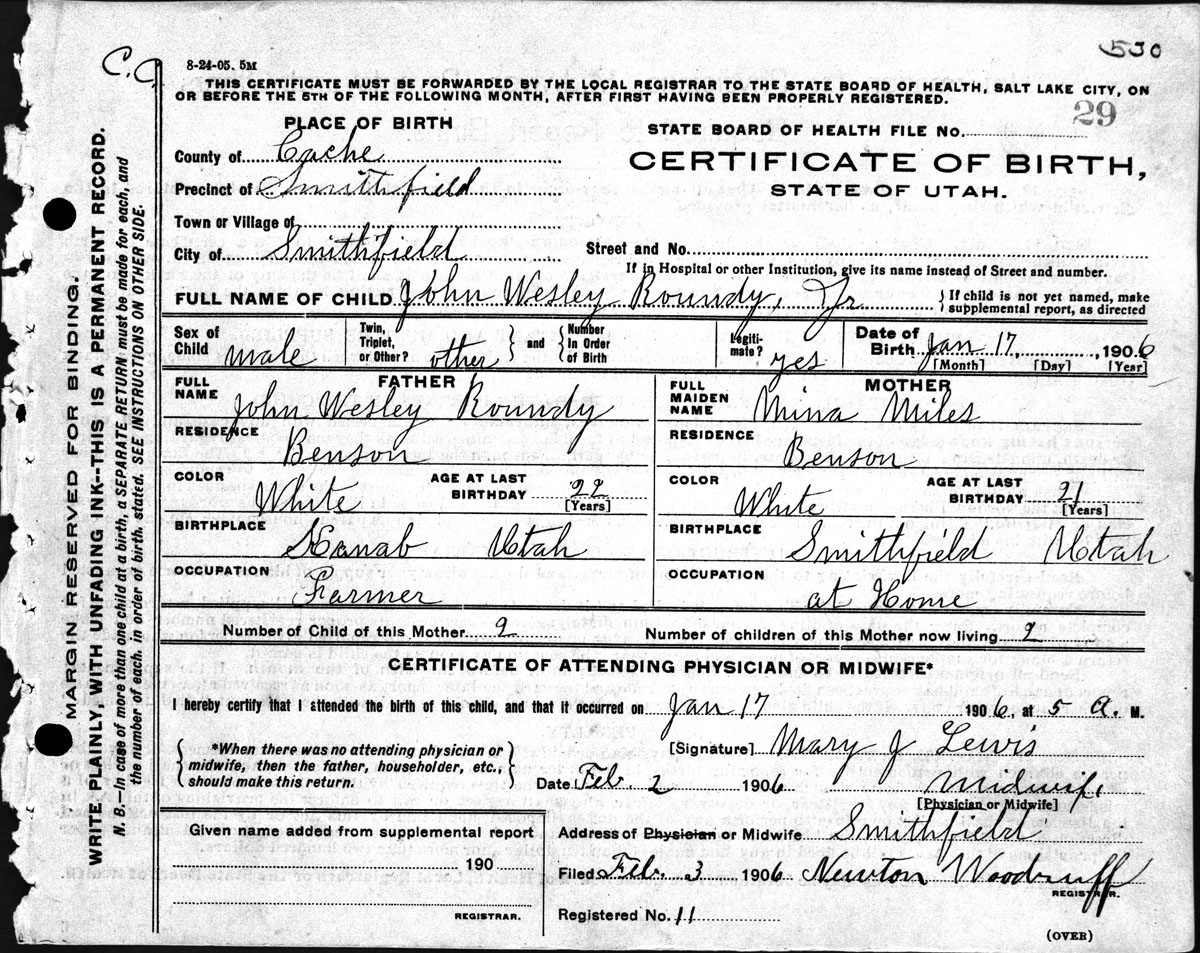 530
C.C.
8-24-05. 5M
THIS CERTIFICATE MUST BE FORWARDED BY THE LOCAL REGISTRAR TO THE STATE BOARD OF HEALTH, SALT LAKE CITY, ON
OR BEFORE THE 5TH OF THE FOLLOWING MONTH, AFTER FIRST HAVING BEEN PROPERLY REGISTERED.
PLACE OF BIRTH
STATE BOARD OF HEALTH FILE No. 29
County of Cache
CERTIFICATE OF BIRTH,
Precinct of Smithfield
STATE OF UTAH.
Town or Village of
City of Smithfield Street and No.
If in Hospital or other Institution, give its name instead of Street and number.
FULL NAME OF CHILD John Wesley Roundy, Jr } If child is not yet named, make supplemental report, as directed
Sex of Child male Twin, Triplet, or Other? other } and { Number In Order of Birth Legiti-mate? yes Date of Birth Jan 17, 1906
[Month] [Day] [Year]
FATHER
FULL NAME John Wesley Roundy
RESIDENCE Benson
COLOR White AGE AT LAST BIRTHDAY 22
[Years]
BIRTHPLACE Kanab Utah
OCCUPATION Farmer
MOTHER
FULL MAIDEN NAME Mina Miles
RESIDENCE Benson
COLOR White AGE AT LAST BIRTHDAY 21
[Years]
BIRTHPLACE Smithfield Utah
OCCUPATION at Home
Number of Child of this Mother 2 Number of children of this Mother now living 2
CERTIFICATE OF ATTENDING PHYSICIAN OR MIDWIFE*
I hereby certify that I attended the birth of this child, and that it occurred on Jan 17 1906, at 5 A. M.
*When there was no attending physician or
midwife, then the father, householder, etc.,
should make this return.
[Signature] Mary J Lewis
Date Feb 2 1906 Midwife
[Physician or Midwife]
Given name added from supplemental report
190
REGISTRAR.
Address of Physician or Midwife Smithfield
Filed Feb. 3 1906 Newton Woodruff
REGISTRAR.
Registered No. 11
(OVER)
MARGIN RESERVED FOR BINDING.
WRITE PLAINLY, WITH UNFADING INK--THIS IS A PERMANENT RECORD.
N. B.—In case of more than one child at a birth, a SEPARATE RETURN must be made for each, and
the number of each, in order of birth, stated. SEE INSTRUCTIONS ON OTHER SIDE.